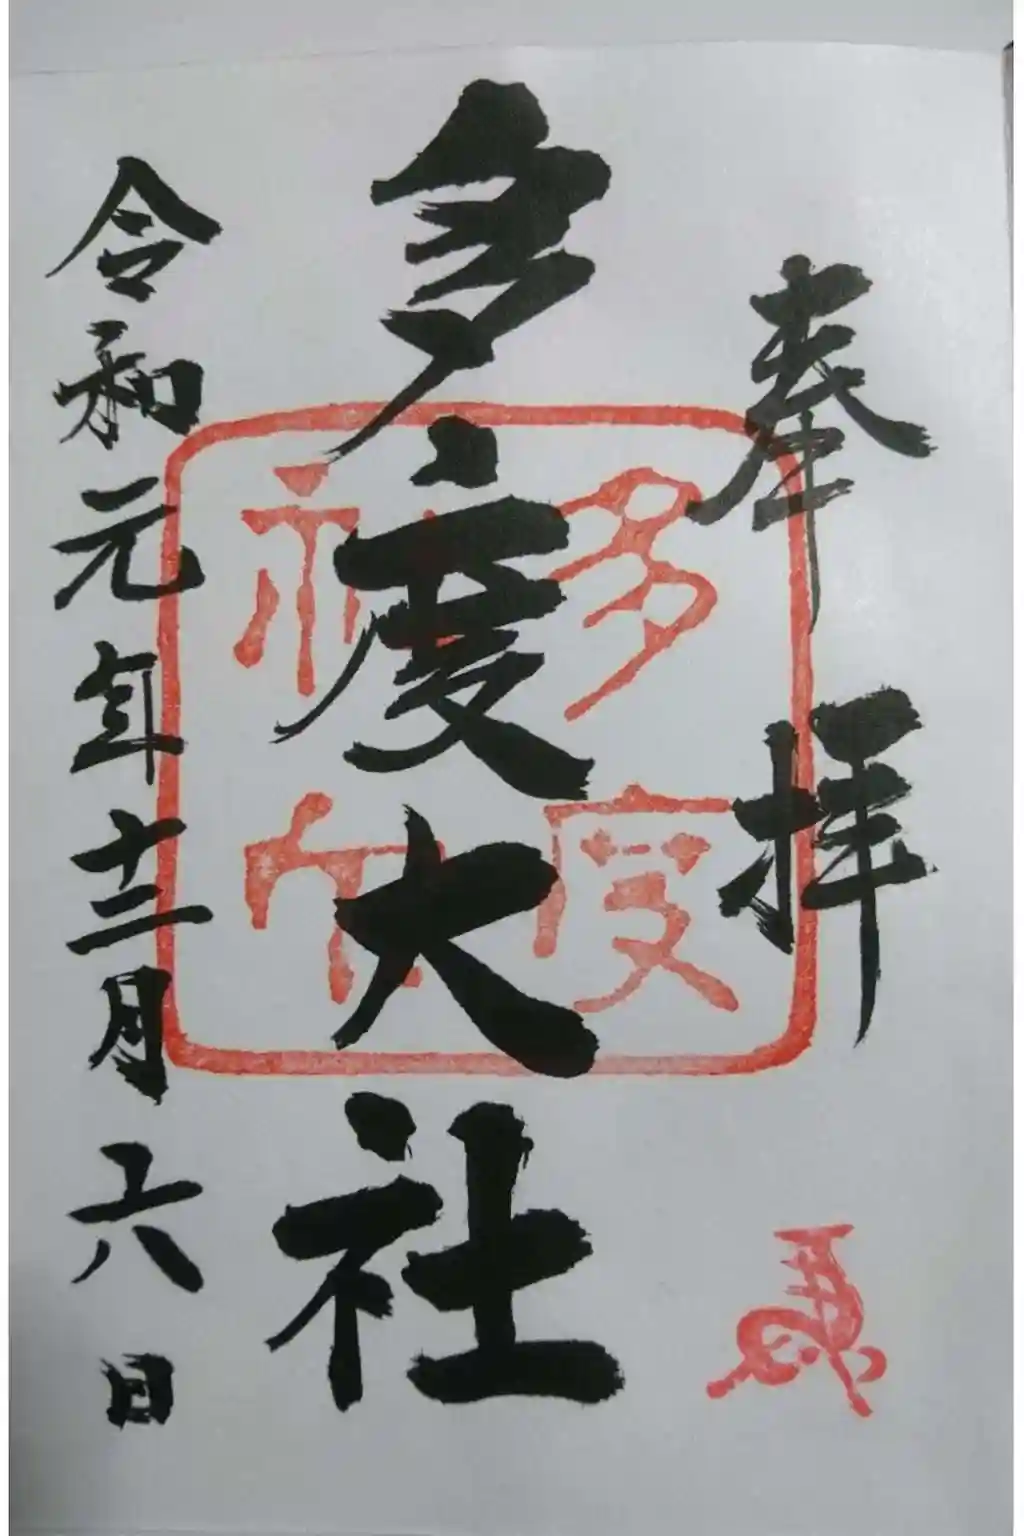 奉拝
多度大社
令和元年十二月六日
多度